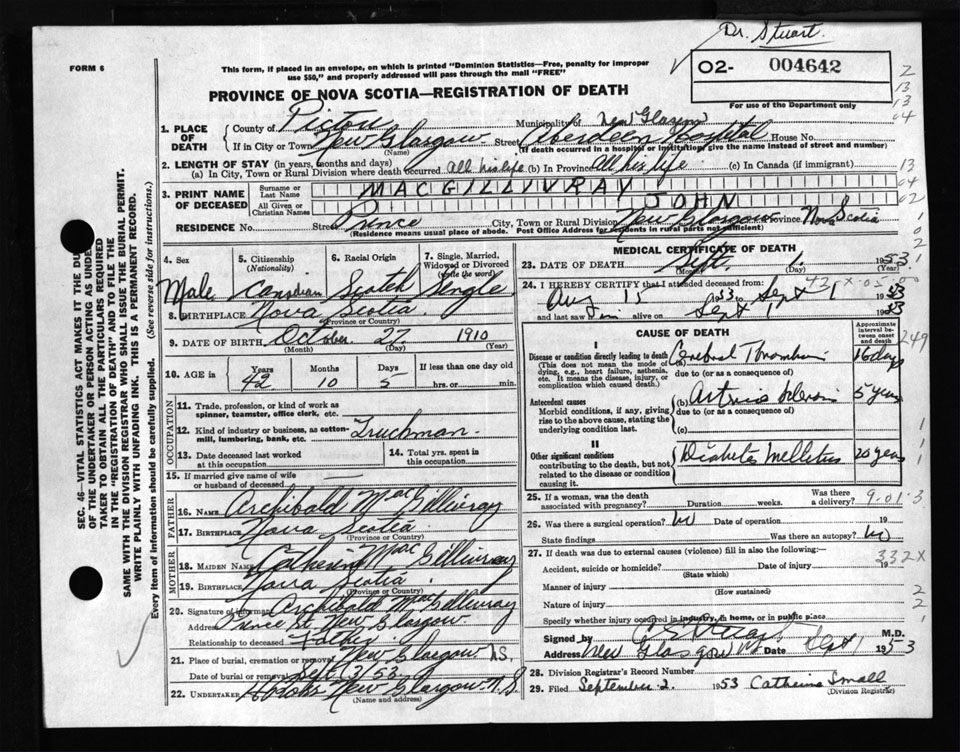 Dr. Stuart.
FORM 6
This form, if placed in an envelope, on which is printed "Dominion Statistics—Free, penalty for improper
use $50," and properly addressed will pass through the mail "FREE"
O2- 004642
PROVINCE OF NOVA SCOTIA—REGISTRATION OF DEATH
For use of the Department only
1. PLACE OF DEATH
County of Pictou Municipality of New Glasgow
If in City or Town New Glasgow Street Aberdeen Hospital House No.
(Name) (If death occurred in a hospital or institution give the name instead of street and number)
2. LENGTH OF STAY (in years, months and days)
(a) In City, Town or Rural Division where death occurred All his life (b) In Province All his life (c) In Canada (if immigrant)
3. PRINT NAME OF DECEASED
Surname or Last Name MACGILLIVRAY
All Given or Christian Names JOHN
RESIDENCE No. Street Prince City, Town or Rural Division New Glasgow Province Nova Scotia
(Residence means usual place of abode. Post Office Address for residents in rural parts not sufficient)
4. Sex Male
5. Citizenship (Nationality) Canadian
6. Racial Origin Scotch
7. Single, Married, Widowed or Divorced (Write the word) Single
8. BIRTHPLACE Nova Scotia
(Province or Country)
9. DATE OF BIRTH October 27 1910
(Month) (Day) (Year)
10. AGE in Years 42 Months 10 Days 5 If less than one day old hrs. or min.
OCCUPATION
11. Trade, profession, or kind of work as spinner, teamster, office clerk, etc.
12. Kind of industry or business, as cotton-mill, lumbering, bank, etc. Truckman.
13. Date deceased last worked at this occupation
14. Total yrs. spent in this occupation
15. If married give name of wife or husband of deceased —
FATHER
16. Name Archibald MacGillivray
17. Birthplace Nova Scotia
(Province or Country)
MOTHER
18. Maiden Name Catherine MacGillivray
19. Birthplace Nova Scotia
(Province or Country)
20. Signature of informant Archibald MacGillivray
Address Prince St. New Glasgow
Relationship to deceased Father.
21. Place of burial, cremation or removal New Glasgow N.S.
Date of burial or removal Sept 3/53
22. Undertaker New Glasgow N.S.
(Name and address)
MEDICAL CERTIFICATE OF DEATH
23. DATE OF DEATH Sept. 1 1953
(Month) (Day) (Year)
24. I HEREBY CERTIFY that I attended deceased from
Aug 15 1953 to Sept 1 1953
and last saw him alive on Sept 1 1953
CAUSE OF DEATH
Approximate interval between onset and death
I
Disease or condition directly leading to death (a) Cerebral Thrombosis 16 days
(This does not mean the mode of dying, e.g., heart failure, asthenia, etc. It means the disease, injury, or complication which caused death.)
due to (or as a consequence of)
Antecedent causes (b) Arterio sclerosis 5 years
Morbid conditions, if any, giving rise to the above cause, stating the underlying condition last.
due to (or as a consequence of)
(c)
II
Other significant conditions Diabetes Mellitus 20 years
contributing to the death, but not related to the disease or condition causing it.
25. If a woman, was the death associated with pregnancy? Duration weeks. Was there a delivery?
9.01.3
26. Was there a surgical operation? No Date of operation 19
State findings Was there an autopsy? No
27. If death was due to external causes (violence) fill in also the following:—
332X
Accident, suicide or homicide? Date of injury 19
(State which)
Manner of injury
(How sustained)
Nature of injury
Specify whether injury occurred in industry, in home, or in public place
Signed by Stuart M.D.
Address New Glasgow NS Date Sept 1 1953
28. Division Registrar's Record Number
29. Filed September 2. 1953 Catherine Small
(Division Registrar)
SEC. 46—VITAL STATISTICS ACT MAKES IT THE DUTY
OF THE UNDERTAKER OR PERSON ACTING AS UNDERTAKER
TO OBTAIN ALL THE PARTICULARS REQUIRED
IN THE "REGISTRATION OF DEATH" AND TO FILE THE
SAME WITH THE DIVISION REGISTRAR WHO SHALL ISSUE THE BURIAL PERMIT.
WRITE PLAINLY WITH UNFADING INK. THIS IS A PERMANENT RECORD.
Every item of information should be carefully supplied. (See reverse side for instructions.)
2
13
13
04
13
04
02
1
0
2
249
1
1
1
2
2
1